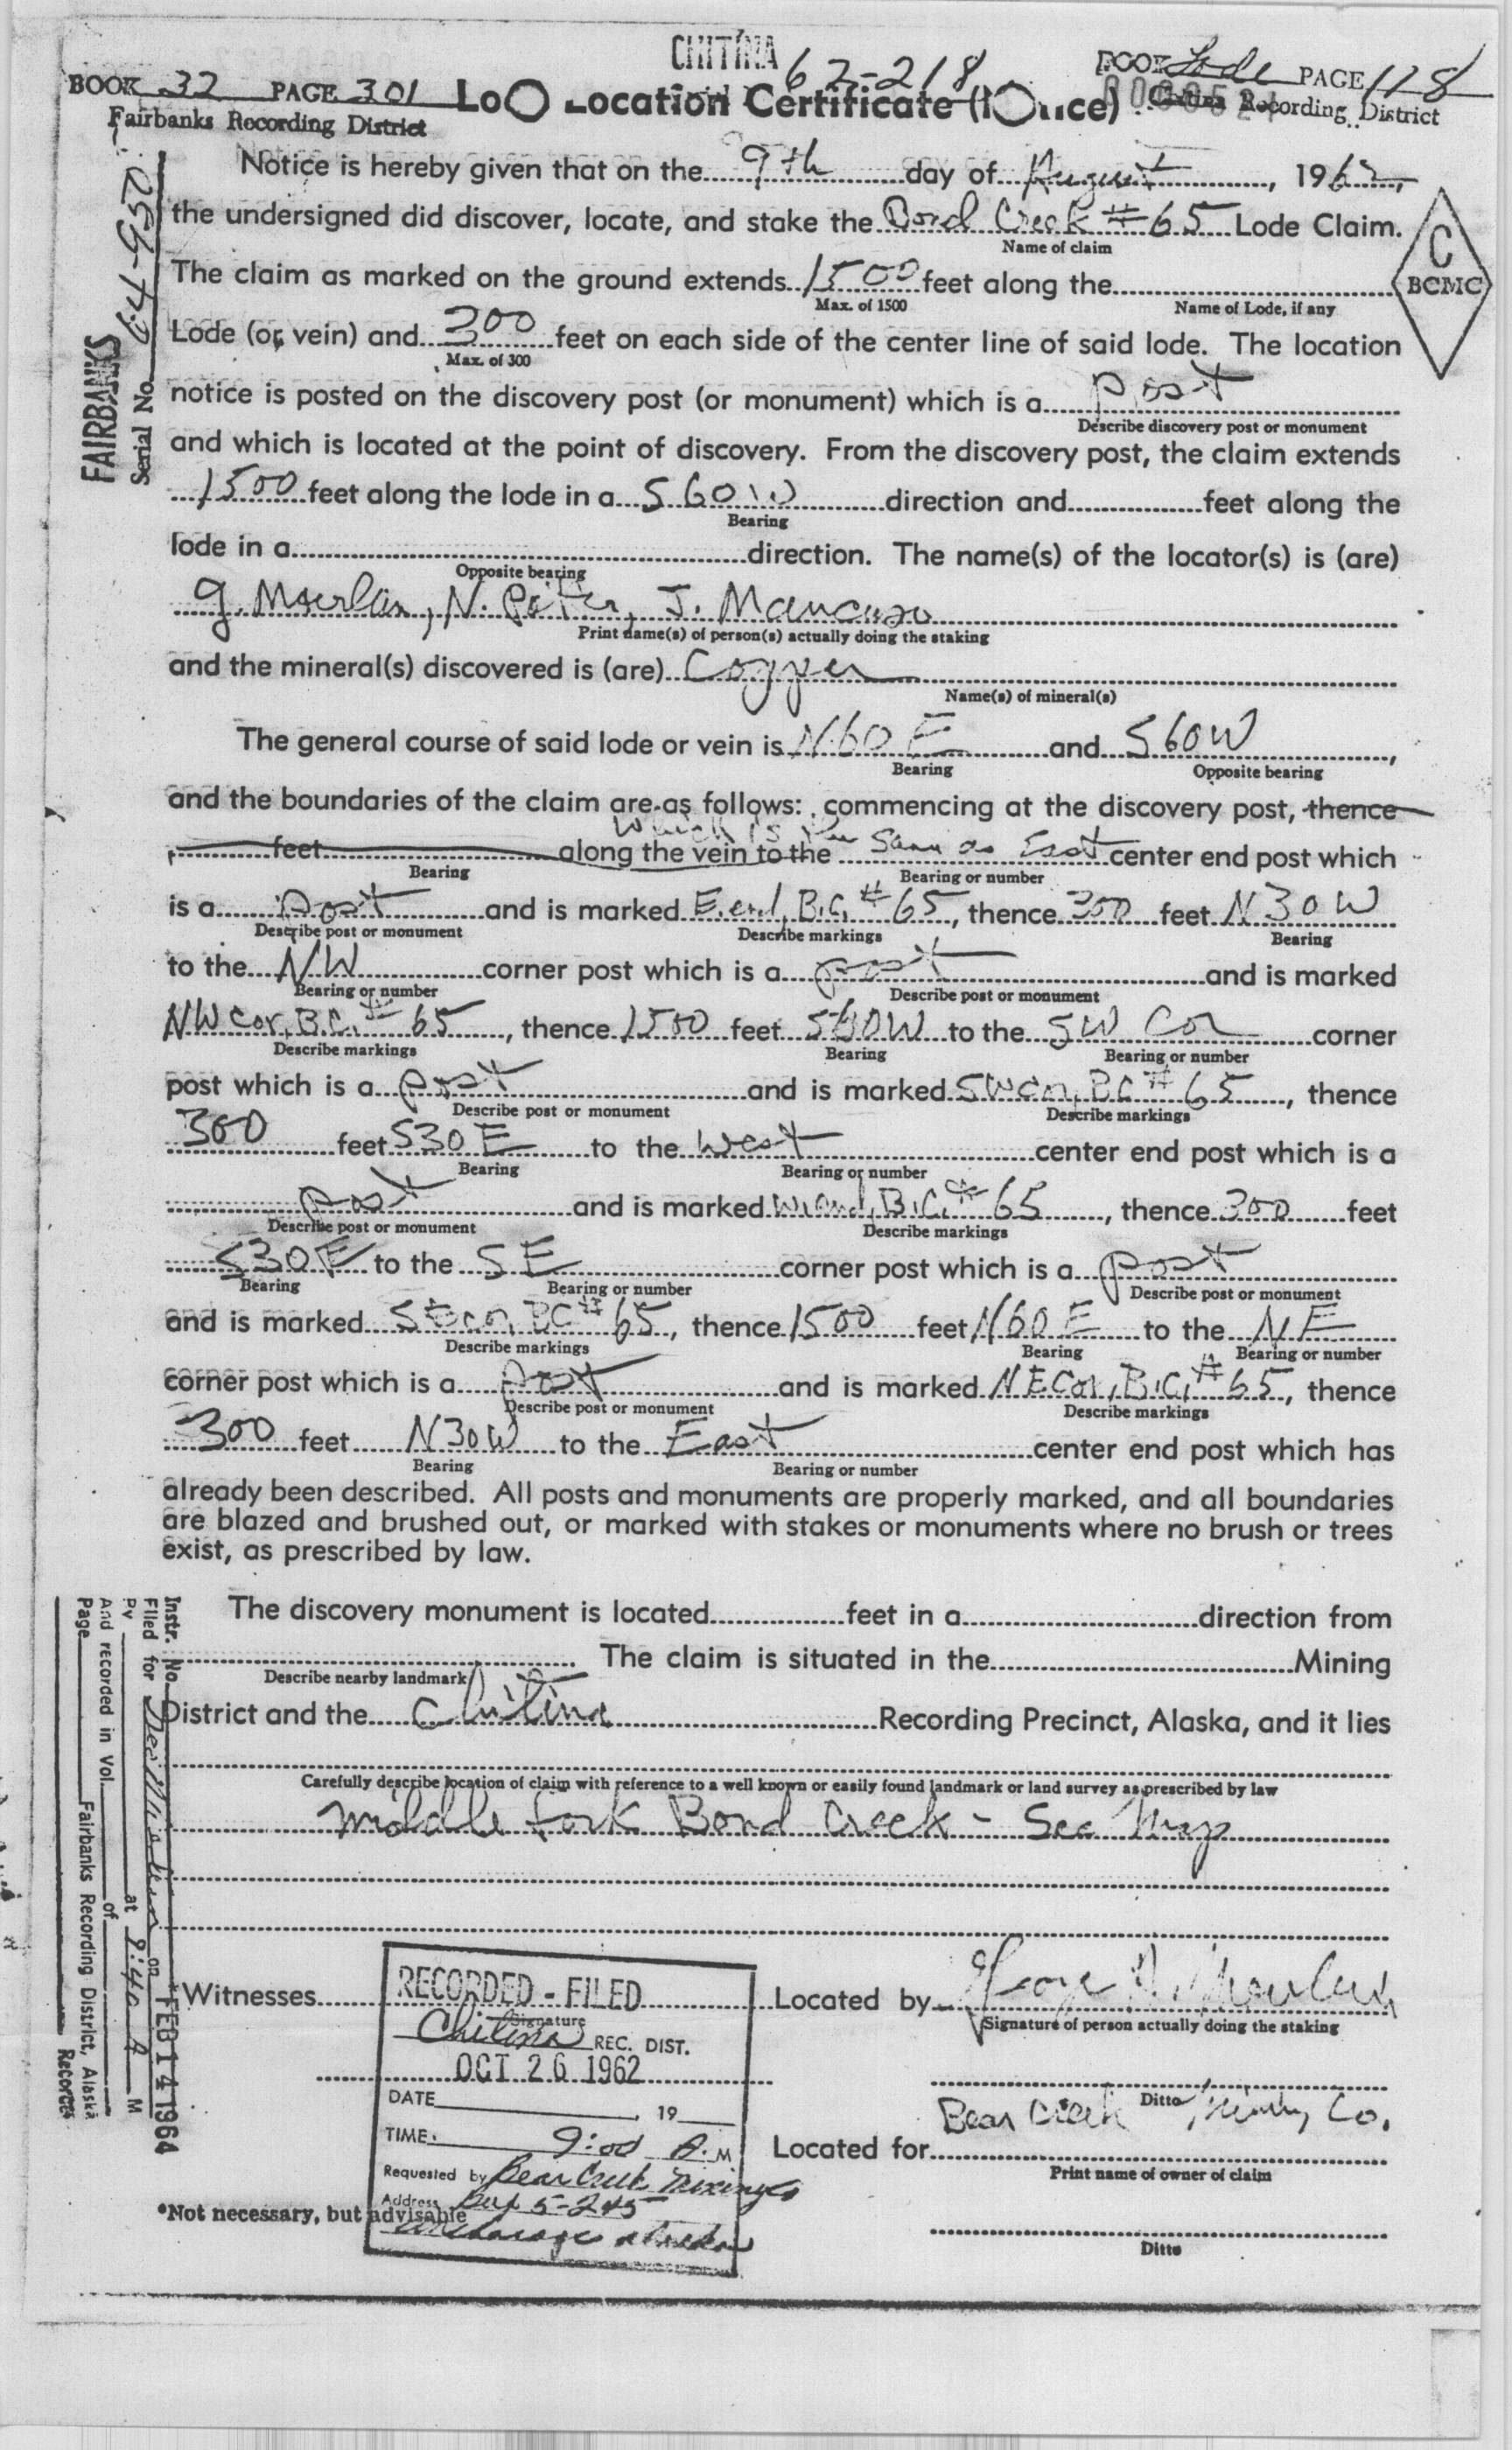 CHITINA
62-218
BOOK 32 PAGE 301
Fairbanks Recording District
Location Certificate
BOOK Lode PAGE 118
Recording District
Notice is hereby given that on the 9th day of August, 1962,
the undersigned did discover, locate, and stake the Bond Creek #65 Lode Claim.
Name of claim
C
BCMC
The claim as marked on the ground extends 1500 feet along the
Max. of 1500 Name of Lode, if any
Lode (or vein) and 300 feet on each side of the center line of said lode. The location
Max. of 300
notice is posted on the discovery post (or monument) which is a post
Describe discovery post or monument
and which is located at the point of discovery. From the discovery post, the claim extends
1500 feet along the lode in a S60W direction and feet along the
Bearing
lode in a direction. The name(s) of the locator(s) is (are)
Opposite bearing
G. Moerlan, N. Potter, J. Mancuso
Print name(s) of person(s) actually doing the staking
and the mineral(s) discovered is (are) Copper
Name(s) of mineral(s)
The general course of said lode or vein is N60E and S60W,
Bearing Opposite bearing
and the boundaries of the claim are as follows: commencing at the discovery post, thence
which is the
feet along the vein to the same as East center end post which
Bearing Bearing or number
is a post and is marked E.end, B.C. #65, thence 300 feet N30W
Describe post or monument Describe markings Bearing
to the NW corner post which is a post and is marked
Bearing or number Describe post or monument
NW cor, B.C. #65, thence 1500 feet S60W to the SW Cor corner
Describe markings Bearing Bearing or number
post which is a post and is marked SW cor, BC #65, thence
Describe post or monument Describe markings
300 feet S30E to the West center end post which is a
Bearing Bearing or number
post and is marked W.end, B.C. #65, thence 300 feet
Describe post or monument Describe markings
S30E to the SE corner post which is a post
Bearing Bearing or number Describe post or monument
and is marked SE cor, BC #65, thence 1500 feet N60E to the NE
Describe markings Bearing Bearing or number
corner post which is a post and is marked NE Cor, B.C. #65, thence
Describe post or monument Describe markings
300 feet N30W to the East center end post which has
Bearing Bearing or number
already been described. All posts and monuments are properly marked, and all boundaries
are blazed and brushed out, or marked with stakes or monuments where no brush or trees
exist, as prescribed by law.
The discovery monument is located feet in a direction from
The claim is situated in the Mining
Describe nearby landmark
District and the Chitina Recording Precinct, Alaska, and it lies
Carefully describe location of claim with reference to a well known or easily found landmark or land survey as prescribed by law
Middle fork Bond Creek - See Map
Witnesses
Signature
Located by
Signature of person actually doing the staking
Ditto
Bear Creek Mining Co.
Located for
Print name of owner of claim
Ditto
*Not necessary, but advisable
RECORDED - FILED
Chitina REC. DIST.
OCT 26 1962
DATE 19
TIME 9:00 A.M
Requested by Bear Creek Mining Co
Address Box 5-245
Anchorage Alaska
FAIRBANKS
Serial No. 64-952
Instr. No.
Filed for on FEB 14 1964
By at 9:40 A M
And recorded in Vol. of Records
Page Fairbanks Recording District, Alaska